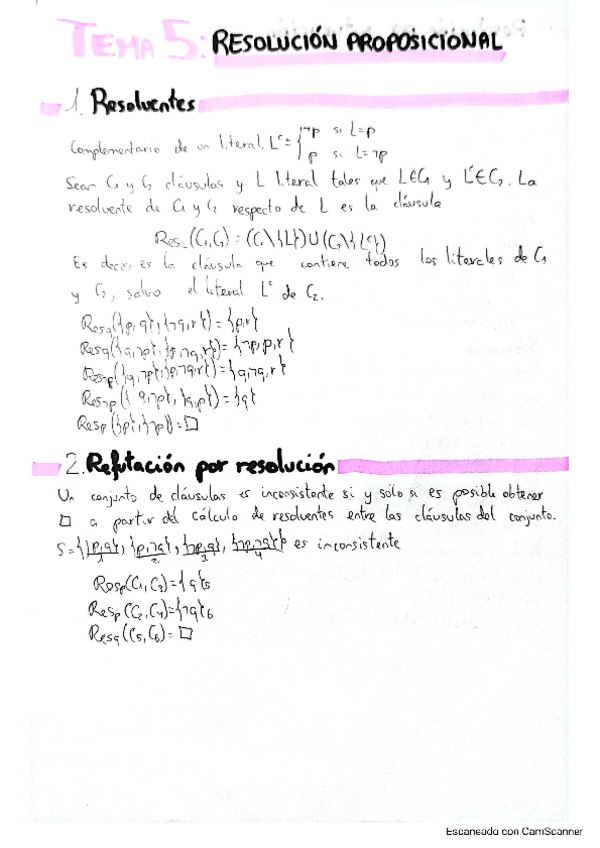 TEMA 5: RESOLUCIÓN PROPOSICIONAL
1. Resolventes
Complementario de un literal. Lᶜ = { ¬p si L=p
p si L=¬p
Sean C₁ y C₂ cláusulas y L literal tales que L∈C₁ y Lᶜ∈C₂. La
resolvente de C₁ y C₂ respecto de L es la cláusula
Res_L(C₁,C₂) = (C₁\{L})∪(C₂\{Lᶜ})
Es decir, es la cláusula que contiene todos los literales de C₁
y C₂, salvo el literal Lᶜ de C₂.
Res_q({p,q},{¬q,r})={p,r}
Res_q({q,¬p},{p,¬q,r})={¬p,p,r}
Res_¬p({q,¬p},{p,¬q,r})={q,¬q,r}
Res_¬p({q,¬p},{q,p})={q}
Res_p({p},{¬p})=□
2. Refutación por resolución
Un conjunto de cláusulas es inconsistente si y sólo si es posible obtener
□ a partir del cálculo de resolventes entre las cláusulas del conjunto.
S={{p,q},{p,¬q},{¬p,q},{¬p,¬q}} es inconsistente
1 2 3 4
Res_p(C₁,C₃)={q}₅
Res_p(C₂,C₄)={¬q}₆
Res_q(C₅,C₆)=□
Escaneado con CamScanner